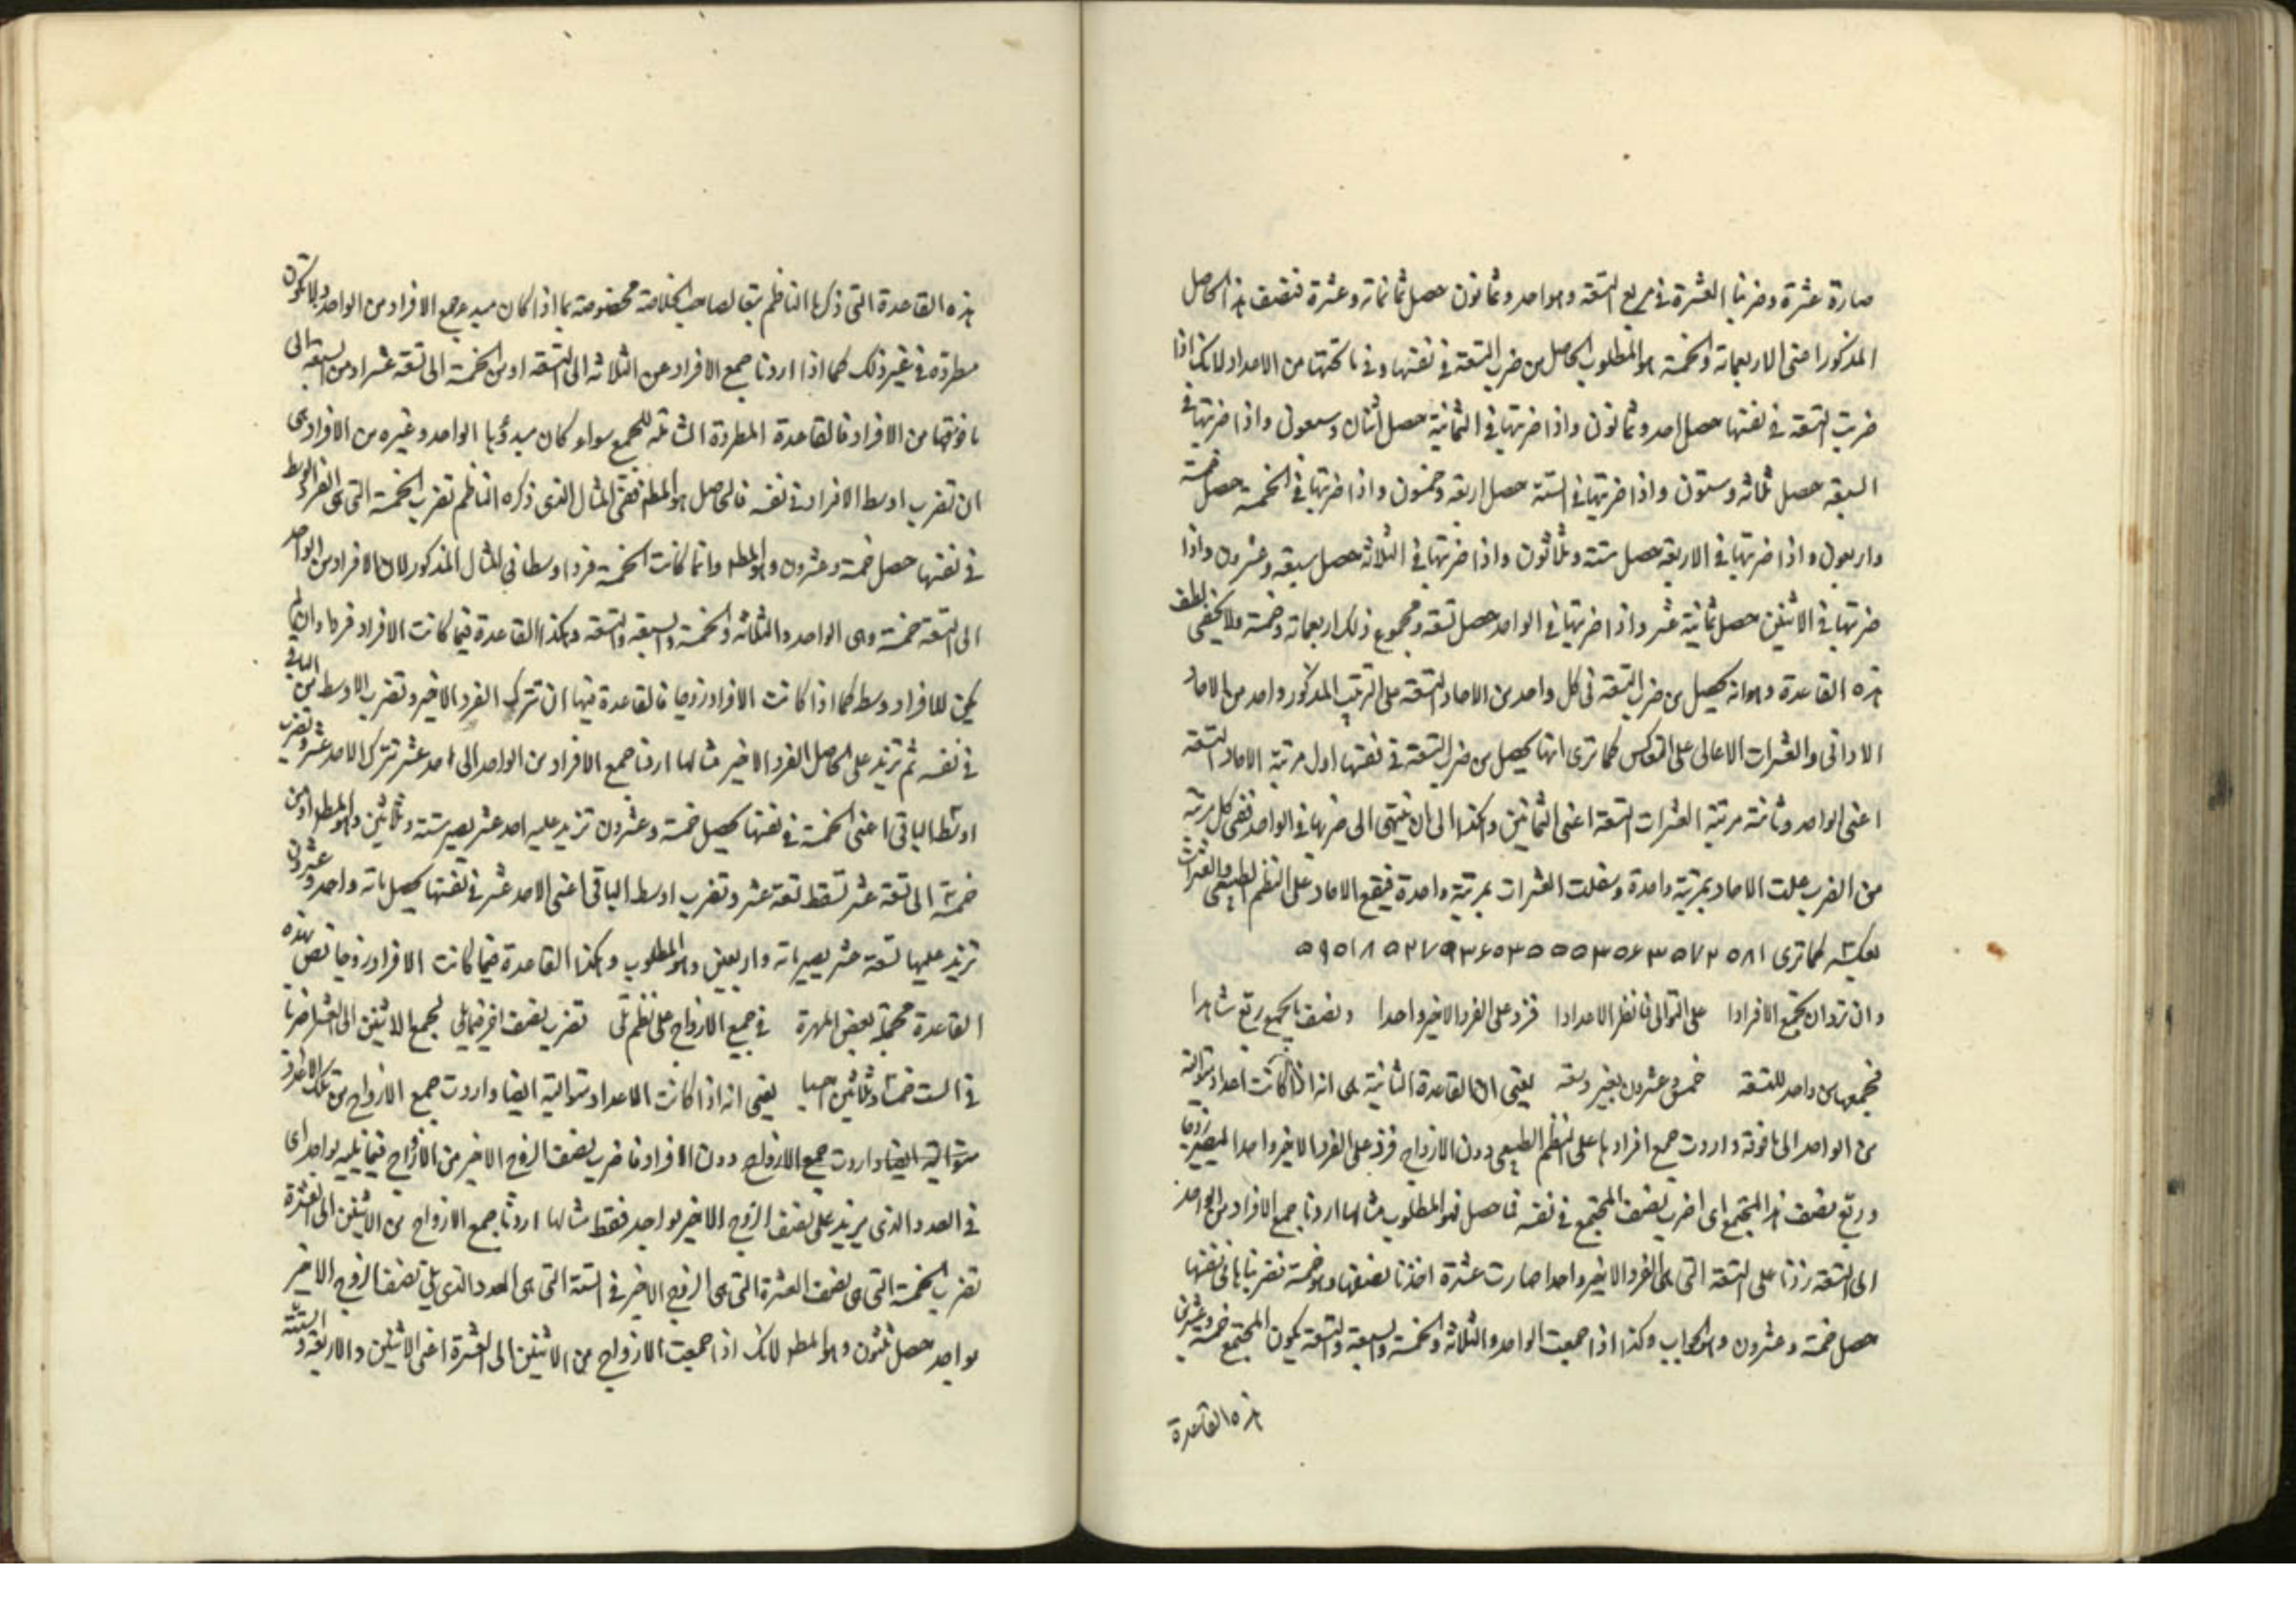 صارة عشرة وضربنا العشرة في مربع التسعة وهو احد وثمانون حصل ثمانمائة وعشرة فنصف هذا الحاصل
المذكور اعنى الاربعمائة والخمسة هو المطلوب الحاصل من ضرب التسعة في نفسها وفي ما تحتها من الاعداد لانك اذا
ضربت التسعة في نفسها حصل احد وثمانون واذا ضربتها في الثمانية حصل اثنان وسبعون واذا ضربتها في
السبعة حصل ثلاثة وستون واذا ضربتها في الستة حصل اربعة وخمسون واذا ضربتها في الخمسة حصل خمسة
واربعون واذا ضربتها في الاربعة حصل ستة وثلاثون واذا ضربتها في الثلاثة حصل سبعة وعشرون واذا
ضربتها في الاثنين حصل ثمانية عشر واذا ضربتها في الواحد حصل تسعة ومجموع ذلك اربعمائة وخمسة ولا يخفى لطف
هذه القاعدة وهو انه يحصل من ضرب التسعة في كل واحد من الاحاد التسعة على الترتيب المذكور واحد من الاحاد
الادانى والعشرات الاعالى على التعاكس كما ترى انها يحصل من ضرب التسعة في نفسها اول مرتبة الاحاد التسعة
اعنى الواحد وثامنة مرتبة العشرات التسعة اعنى الثمانين وهكذا الى ان ينتهى الى ضربها في الواحد ففى كل مرتبة
من الضرب علت الاحاد بمرتبة واحدة وسفلت العشرات بمرتبة واحدة فيقع الاحاد على النظم الطبيعى والعشرات
بعكسه كما ترى
وان ترد ان تجمع الافرادا على التوالى فانظر الاعدادا فزد على الفرد الاخير واحدا ونصف ما يجمع ربع شاهدا
فجمعها من واحد للتسعة خمس وعشرون بغير دسعة يعنى ان القاعدة الثانية هى انه اذا كانت اعداد متوالية
من الواحد الى ما فوقه واردت جمع افرادها على النظم الطبيعى دون الازواج فزد على الفرد الاخير واحدا ليصير زوجا
وربع نصف هذا المجتمع اى اضرب نصف المجتمع في نفسه فما حصل فهو المطلوب مثالها اردنا جمع الافراد من الواحد
الى التسعة زدنا على التسعة التى هى الفرد الاخير واحدا صارت عشرة اخذنا نصفها وهو خمسة فضربناها في نفسها
حصل خمسة وعشرون وهو الجواب وكذا اذا جمعت الواحد والثلاثة والخمسة والسبعة والتسعة يكون المجتمع خمسة وعشرين
هذه القاعدة
هذه القاعدة التى ذكرها الناظم تبعا لصاحب الخلاصة مخصوصة بما اذا كان مبدء جمع الافراد من الواحد ولا تكون
مطردة في غير ذلك كما اذا اردنا جمع الافراد من الثلاثة الى التسعة او من الخمسة الى تسعة عشر او من السبعة الى
ما فوقها من الافراد فالقاعدة المطردة الشاملة للجمع سواء كان مبدؤها الواحد وغيره من الافراد هى
ان تضرب اوسط الافراد في نفسه فالحاصل هو المط ففى المثال الذى ذكره الناظم تضرب الخمسة التى هى الفرد الوسط
في نفسها حصل خمسة وعشرون وهو المط وانما كانت الخمسة فردا وسطا في المثال المذكور لان الافراد من الواحد
الى التسعة خمسة وهى الواحد والثلاثة والخمسة والسبعة والتسعة وهكذا القاعدة فيما كانت الافراد فردا وان لم
يكن للافراد وسط كما اذا كانت الافراد زوجا فالقاعدة فيها ان تترك الفرد الاخير وتضرب الاوسط من الباقى
في نفسه ثم تزيد على الحاصل الفرد الاخير مثالها اردنا جمع الافراد من الواحد الى احد عشر تترك الاحد عشر وتضرب
اوسط الباقى اعنى الخمسة في نفسها يحصل خمسة وعشرون تزيد عليه احد عشر يصير ستة وثلاثين وهو المط او من
خمسة الى تسعة عشر تسقط تسعة عشر وتضرب اوسط الباقى اعنى الاحد عشر في نفسها يحصل مائة واحد وعشرون
تزيد عليها تسعة عشر يصير مائة واربعين وهو المطلوب وهكذا القاعدة فيما كانت الافراد زوجا نص هذه
القاعدة بعض المهرة في جمع الازواج على نظم تلى تضرب نصف اخر فيما يلى لجمع الاثنين الى العشر اضربا
في الست خمسا وثلاثين احسبا يعنى انه اذا كانت الاعداد متوالية ايضا واردت جمع الازواج من تلك الاعداد
متوالية ايضا واردت جمع الازواج دون الافراد فاضرب نصف الزوج الاخير من الازواج فيما يليه بواحد اى
في العدد الذى يزيد على نصف الزوج الاخير بواحد فقط مثالها اردنا جمع الازواج من الاثنين الى العشرة
تضرب الخمسة التى هى نصف العشرة التى هى الزوج الاخير في الستة التى هى العدد الذى يلى نصف الزوج الاخير
بواحد حصل ثلثون وهو المط لانك اذا جمعت الازواج من الاثنين الى العشرة اعنى الاثنين والاربعة والستة